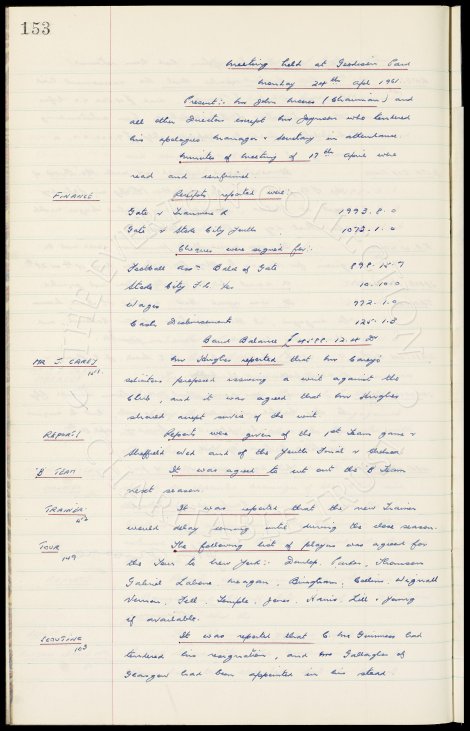 153
Meeting held at Goodison Park
Monday 24th Apl 1961.
Present:- Mr John Moores (Chairman) and
all other Directors except Mr Joynson who tendered
his apologies. Manager & Secretary in attendance.
Minutes of Meeting of 17th April were
read and confirmed.
FINANCE
Receipts reported were:
Gate v Tranmere R 1993. 8. 0
Gate v Stoke City Youth 1073. 1. 0
Cheques were signed for:-
Football Assn Balce of Gate
Stoke City F.C. 10. 10. 0
Wages 772. 1. 9
Cash Disbursements 125. 1. 8
Bank Balance £ 4588. 12. 4 Dr
MR J. CAREY
Mr Hughes reported that Mr Carey's
solicitors proposed issuing a writ against the
Club, and it was agreed that Mr Hughes
should accept service of the writ.
REPORTS
Reports were given of the 1st Team game v
Sheffield Wed and of the Youth Final v Chelsea.
'B' TEAM
It was agreed to cut out the 'B' Team
next season.
TRAINER
It was reported that the new Trainer
would delay coming until during the close season.
TOUR
149
The following list of players was agreed for
the Tour to New York:- Dunlop, Parker, Thomson
Gabriel Labone Meagan, Bingham, Collins Wignall
Vernon, Fell, Temple, Jones, Harris, Lill & Young
if available.
SCOUTING
It was reported that Mr Guinness had
tendered his resignation, and Mr Gallagher of
Glasgow had been appointed in his stead.
THE EVERTON COLLECTION
CHARITABLE TRUST